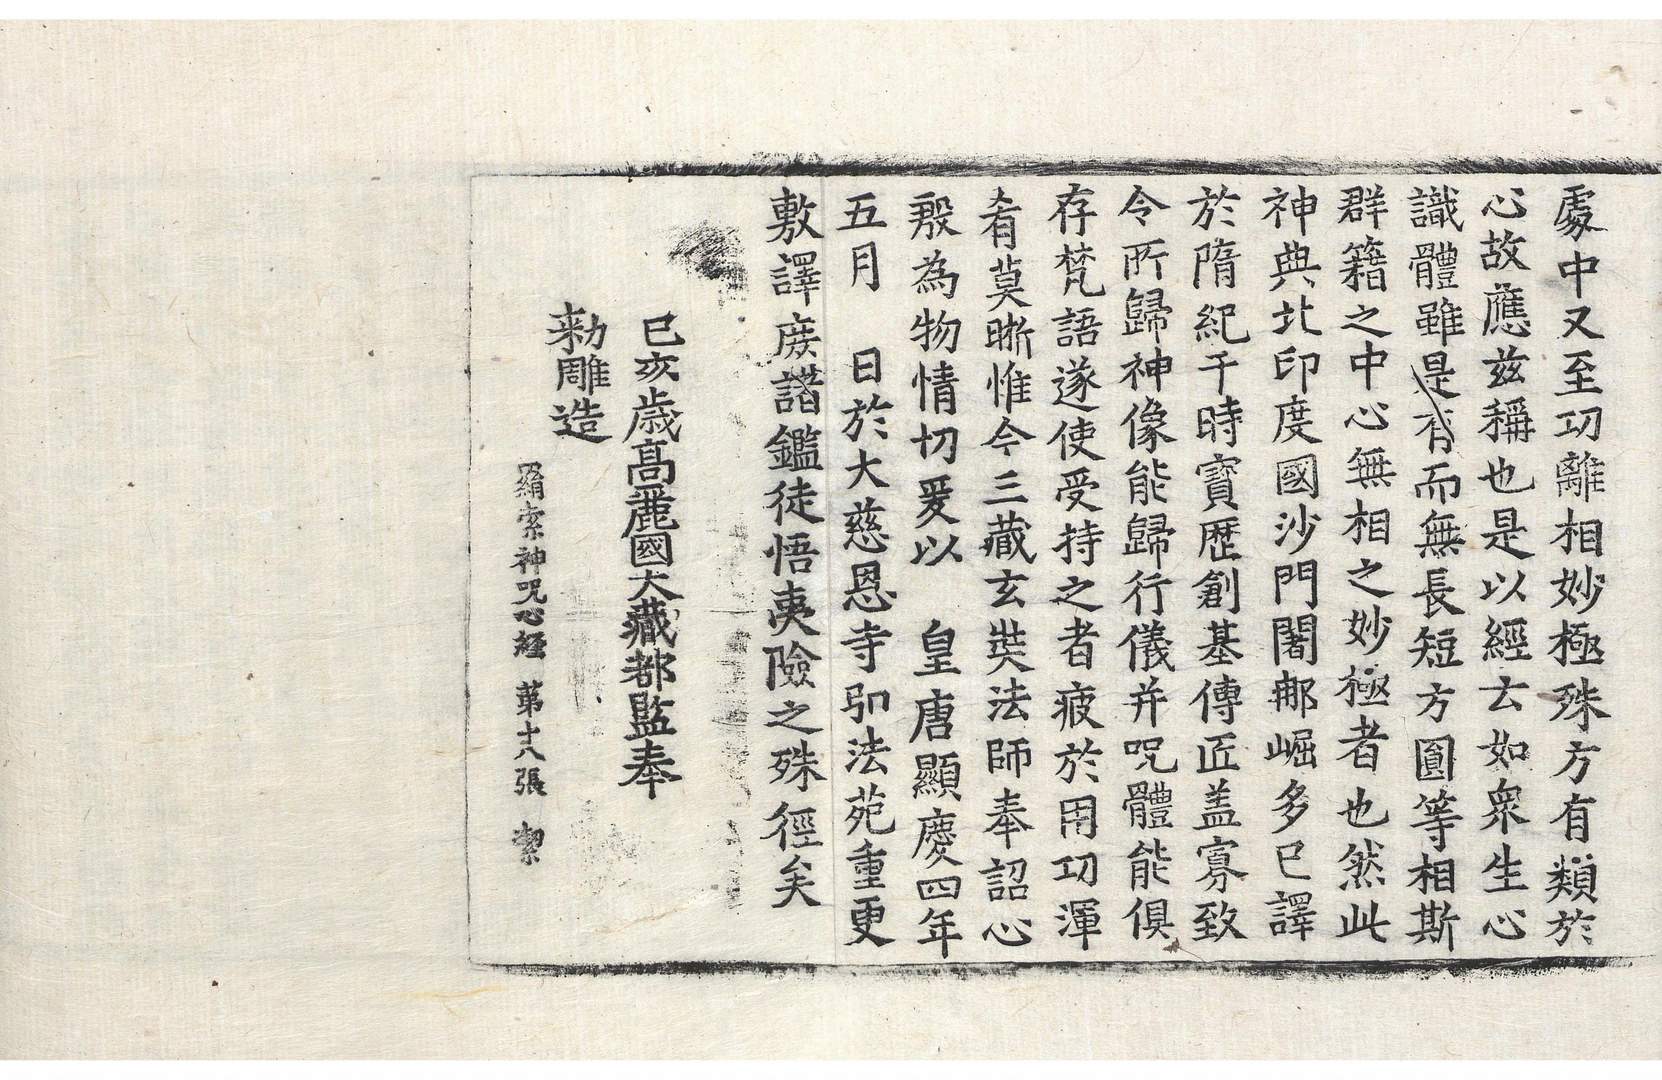 處中又至功離相妙極殊方有類於
心故應兹稱也是以經云如衆生心
識體雖是有而無長短方圓等相斯
群籍之中心無相之妙極者也然此
神典北印度國沙門闍郍崛多已譯
於隋紀于時寶歷創基傳匠盖寡致
令所歸神像能歸行儀并呪體能俱
存梵語遂使受持之者疲於用功渾
肴莫晣惟今三藏玄奘法師奉詔心
殷為物情切爰以 皇唐顯慶四年
五月 日於大慈恩寺弘法苑重更
敷譯庻諧鑑徒悟夷險之殊徑矣
己亥歳高麗國大藏都監奉
勑雕造
羂索神呪心經 苐十八張 㓗